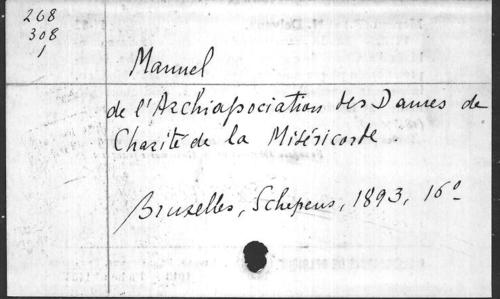 268
308
1
Manuel
de l'Archiassociation des Dames de
Charité de la Miséricorde.
Bruxelles, Schepens, 1893, 16º